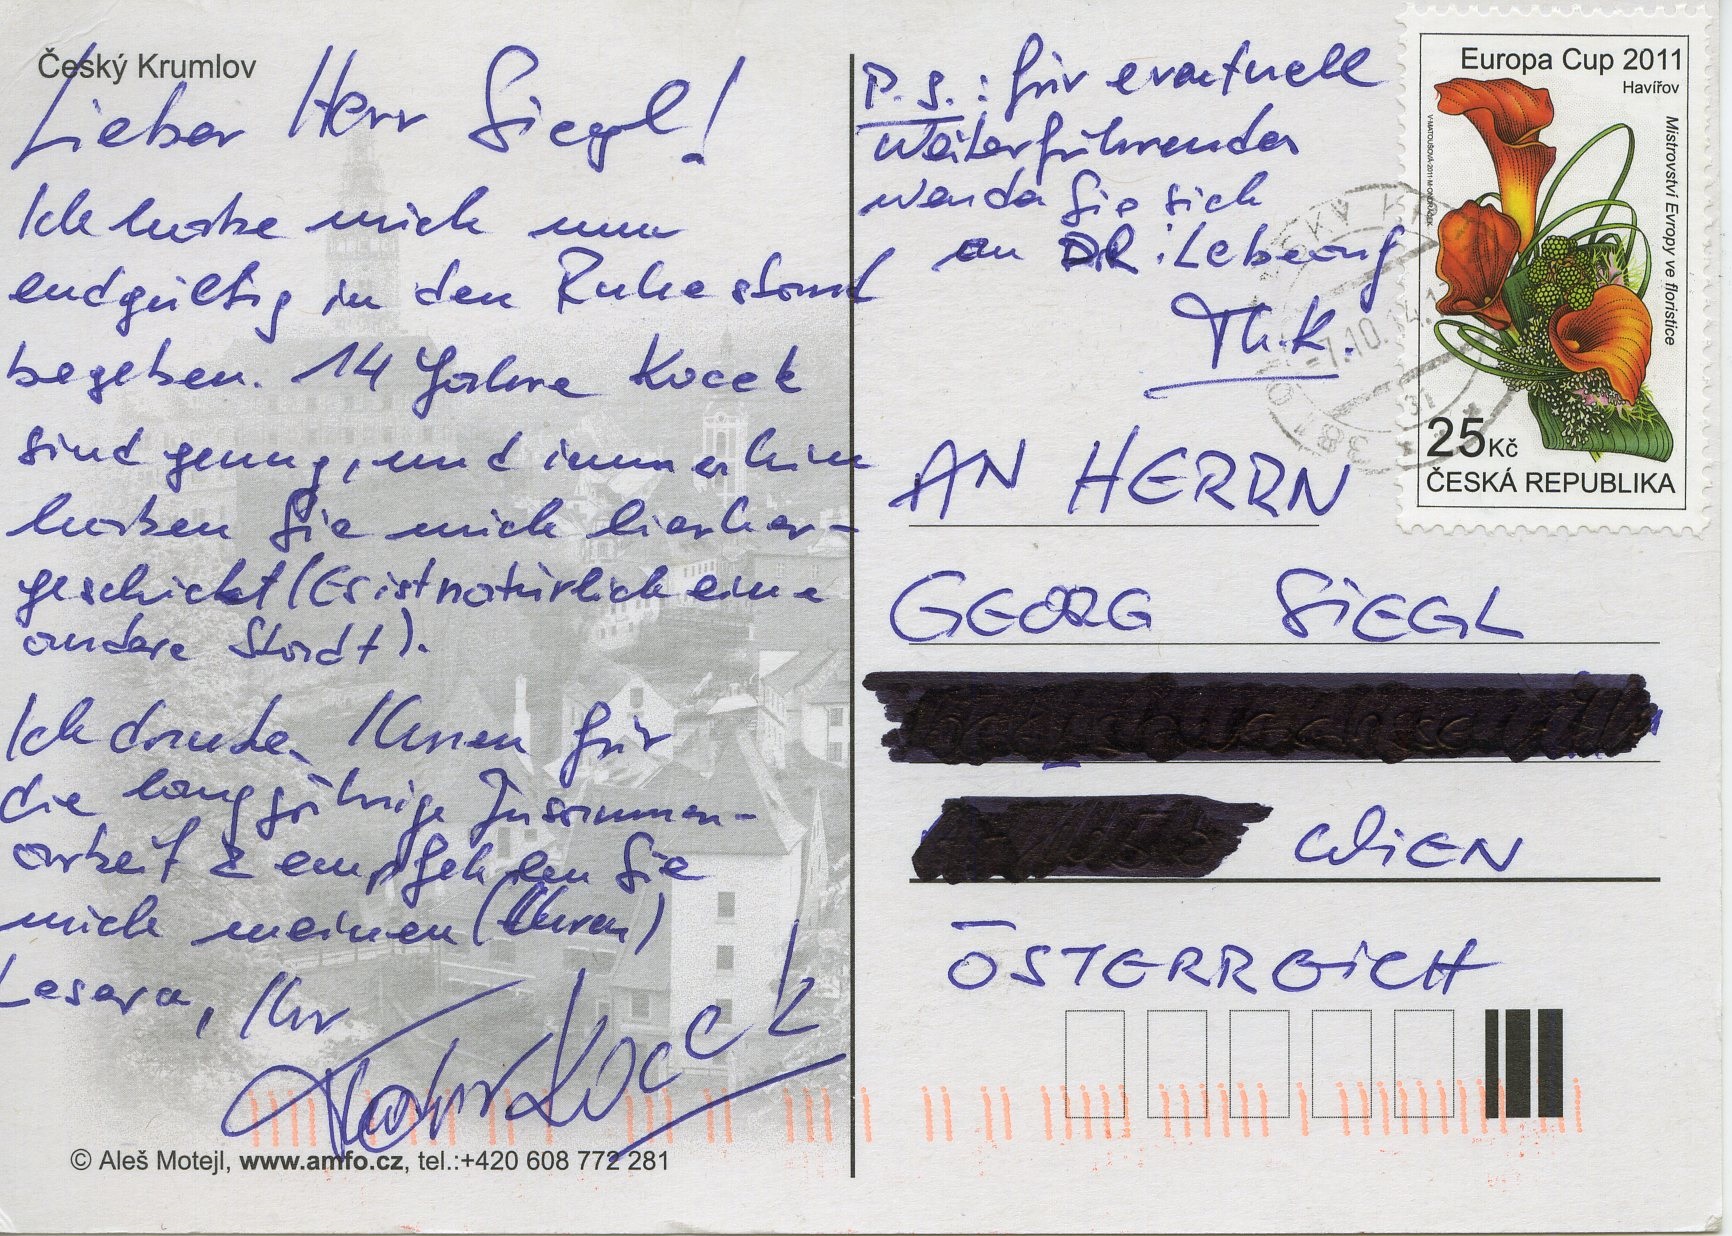 Český Krumlov
Lieber Herr Siegl!
Ich habe mich nun
endgültig in den Ruhestand
begeben. 14 Jahre Kocek
sind genug, und immerhin
haben Sie mich hierher-
geschickt (Es ist natürlich eine
andere Stadt).
Ich danke Ihnen für
die langjährige Zusammen-
arbeit & empfehlen Sie
mich meinen (Ihren)
Lesern, Ihr
Kocek
© Aleš Motejl, www.amfo.cz, tel.:+420 608 772 281
P.S.: für eventuell
Weiterführendes
wenden Sie sich
an DR.
Th.K.
AN HERRN
GEORG SIEGL
WIEN
ÖSTERREICH
Europa Cup 2011
Havířov
Mistrovství Evropy ve floristice
25Kč
ČESKÁ REPUBLIKA